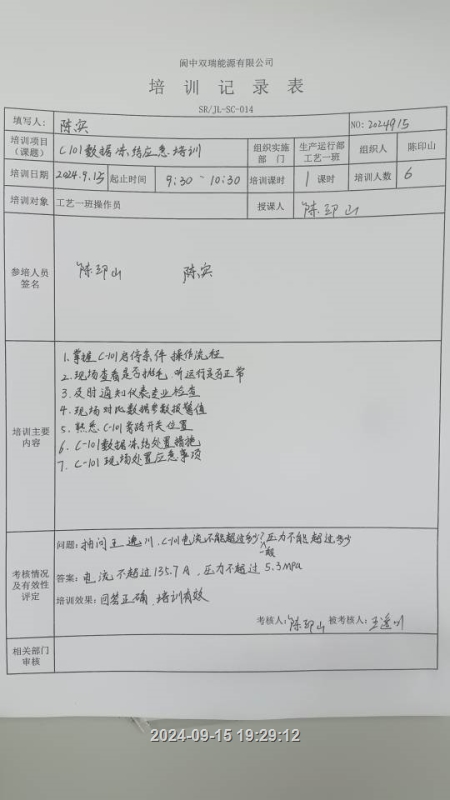 阆中双瑞能源有限公司
培训记录表
SR/JL-SC-014
填写人： 陈实 NO: 2024915
培训项目（课题） C101数据冻结应急培训 组织实施部门 生产运行部工艺一班 组织人 陈印山
培训日期 2024.9.15 起止时间 9:30~10:30 培训课时 1课时 培训人数 6
培训对象 工艺一班操作员 授课人 陈印山
参培人员签名 陈印山 陈实
培训主要内容
1. 掌握C-101启停条件 操作流程
2. 现场查看是否抛毛 听运行是否正常
3. 及时通知仪表专业检查
4. 现场对比数据参数报警值
5. 熟悉C-101旁路开关位置
6. C-101数据冻结处置措施
7. C-101现场处置应急事项
考核情况及有效性评定
问题：抽问王逸川，C-101电流不能超过多少？压力不能超过多少
一般
答案：电流不超过135.7A，压力不超过5.3MPa
培训效果：回答正确，培训有效
考核人：陈印山 被考核人：王逸川
相关部门审核
2024-09-15 19:29:12